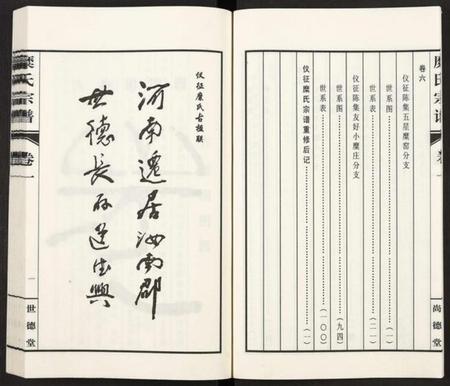 糜氏宗谱
卷一
尚德堂
卷六
仪征陈集五星糜窑分支
世系图……（一）
世系表……（二一）
仪征陈集友好小糜庄分支
世系图……（九四）
世系表……（一〇〇）
仪征糜氏宗谱重修后记……（一）
仪征糜氏古楹联
河南迁居汝南郡
世德长存道德兴
糜氏宗谱
卷一
一
世德堂